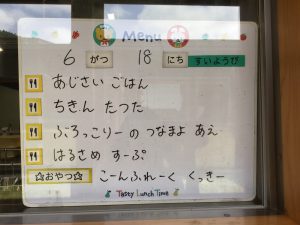 Menu
6 がつ 18 にち すいようび
あじさい ごはん
ちきん たつた
ぶろっこりーの つなまよ あえ
はるさめ すーぷ
☆おやつ☆ こーんふれーく くっきー
Tasty Lunch Time